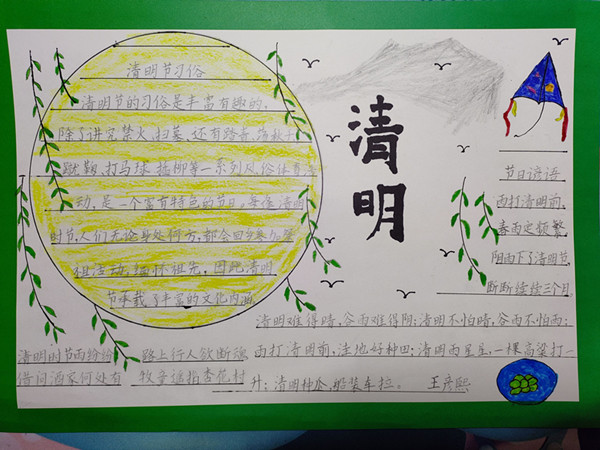 清明节习俗
清明节的习俗是丰富有趣的，
除了讲究禁火、扫墓，还有踏青、荡秋千
蹴鞠、打马球、插柳等一系列风俗体育活
动，是一个富有特色的节日，每逢清明
时节，人们无论身处何方，都会回乡参加祭
祖活动，缅怀祖先，因此，清明
节承载了丰富的文化内涵
清明
节日谚语
雨打清明前，
春雨定频繁，
阴雨下了清明节，
断断续续三个月
清明难得晴，谷雨难得阴；清明不怕晴，谷雨不怕雨；
雨打清明前，洼地好种田；清明雨星星，一棵高粱打一
升；清明种瓜，船装车拉。 王彦熙
清明时节雨纷纷 路上行人欲断魂
借问酒家何处有 牧童遥指杏花村